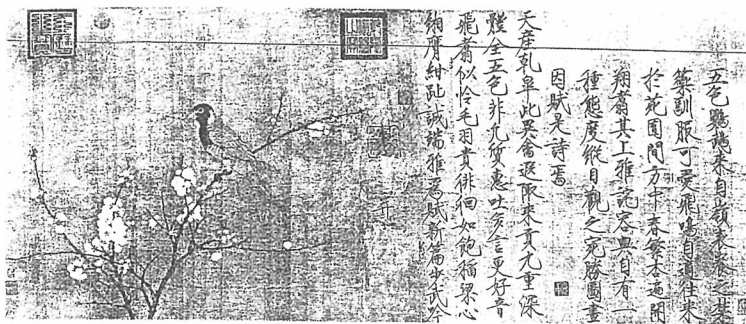 五色鸚鵡來自嶺表養之禁
籞馴服可愛飛鳴自適往來
於苑囿間方中春繁杏遍開
翔翥其上雅詫容與自有一
種態度縱目觀之宛勝圖畫
因賦是詩焉
天產乾皋此異禽遐陬來貢九重深
體全五色非凡質惠吐多言更好音
飛翥似憐毛羽貴徘徊如飽稻粱心
緗膺紺趾誠端雅爲賦新篇步武吟